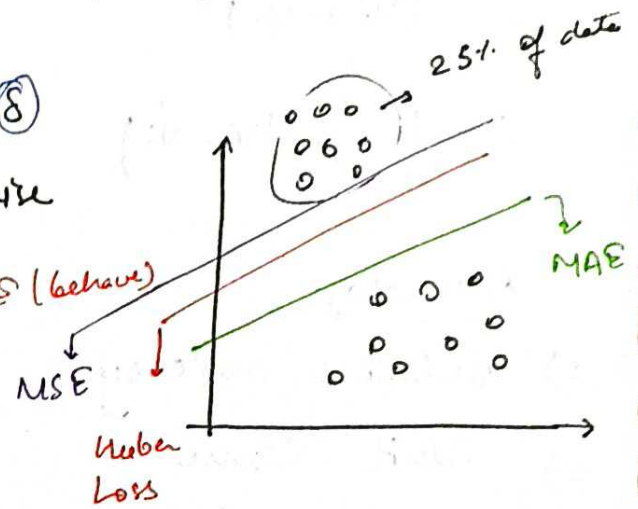 25% of data
δ
(behave)
MAE
MSE
Huber
Loss